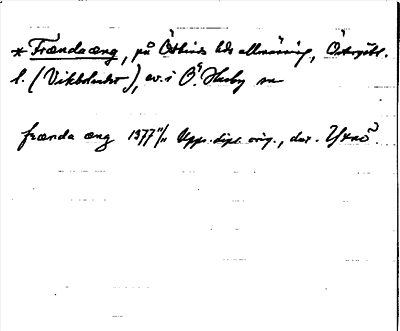 * Frændaæng, på Östkinds hds allmänning, Östergötl.
l. (Vikbolandet), ev. i Ö. Husby sn
frænda æng 1377 11/11 Upps. dipl. orig., dat. Yxnö.